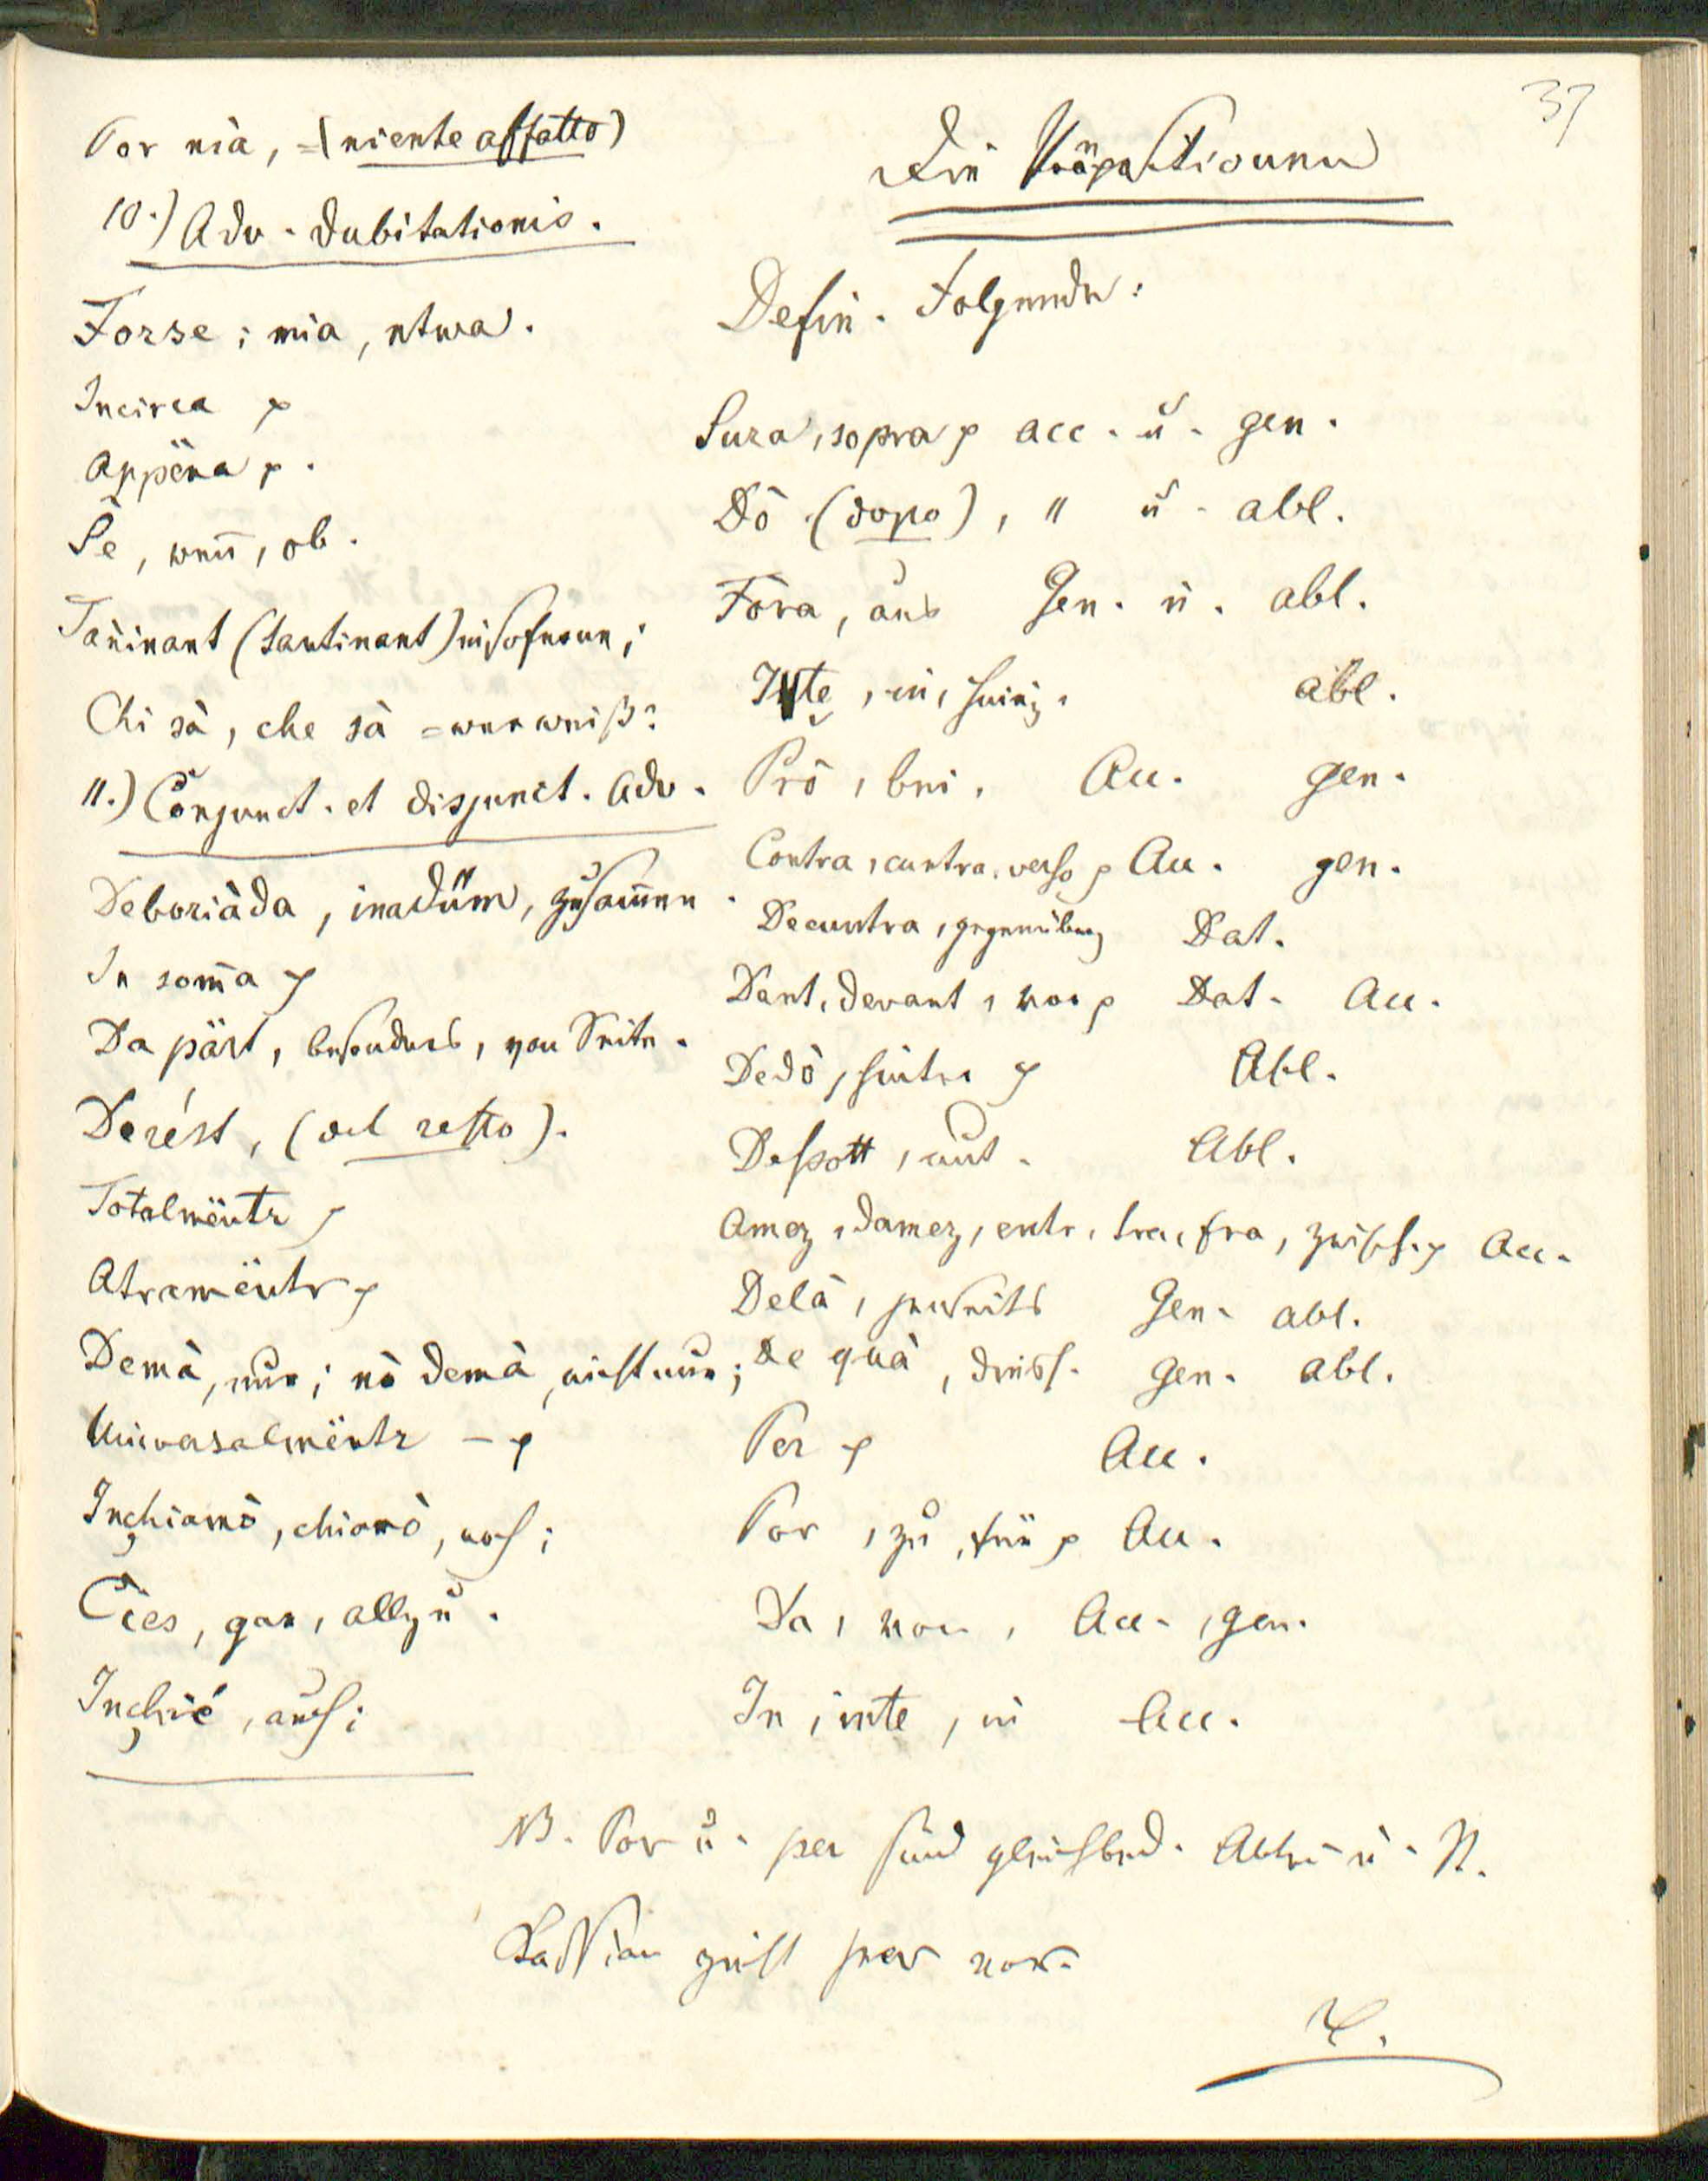 37
Por nia, =(niente affatto)
10.) Adv. dubitationis.
Forse; mia, etwa.
Incirca p
Appëna p.
Se, wen̄, ob.
Tañinant (tantinant) insofern;
Chi sà, che sà = wer weiß?
11.) Conjunct. et disjunct. Adv.
Deboriàda, inadüm, zusam̄en.
In som̄a p
Da pärt, besonders, von Seite.
Derést, (del resto).
Totalmëntr p
Atramëntr p
Demà, nur; nò demà, nicht nur;
Universalmëntr – p
Inchiamò, chiamò, noch;
Cies, gar, allzu.
Inchié, auch;
Die Präpositionen
Defin. Folgende:
Sura, sopra p acc. u. gen.
Dò (dopo), " u. abl.
Föra, aus Gen. u. abl.
Inte, in, abl.
Prò, bei, Acc. gen.
Contra, cuntra, verso p Acc. gen.
Decuntra, gegenüber Dat.
Dant, devant, vor p Dat. Acc.
Dedò, hinter p Abl.
Desott, unt. Abl.
Amez, damez, entr, tra, fra, zwisch. p Acc.
Delà, jenseits Gen. abl.
De quà, diess. gen. abl.
Per p Acc.
Por, zu, für p Acc.
Da, von, Acc., gen.
In, inte, in Acc.
NB. Por u. per sind gleichbed. Abtei u. N.
Kassian zieht per vor.